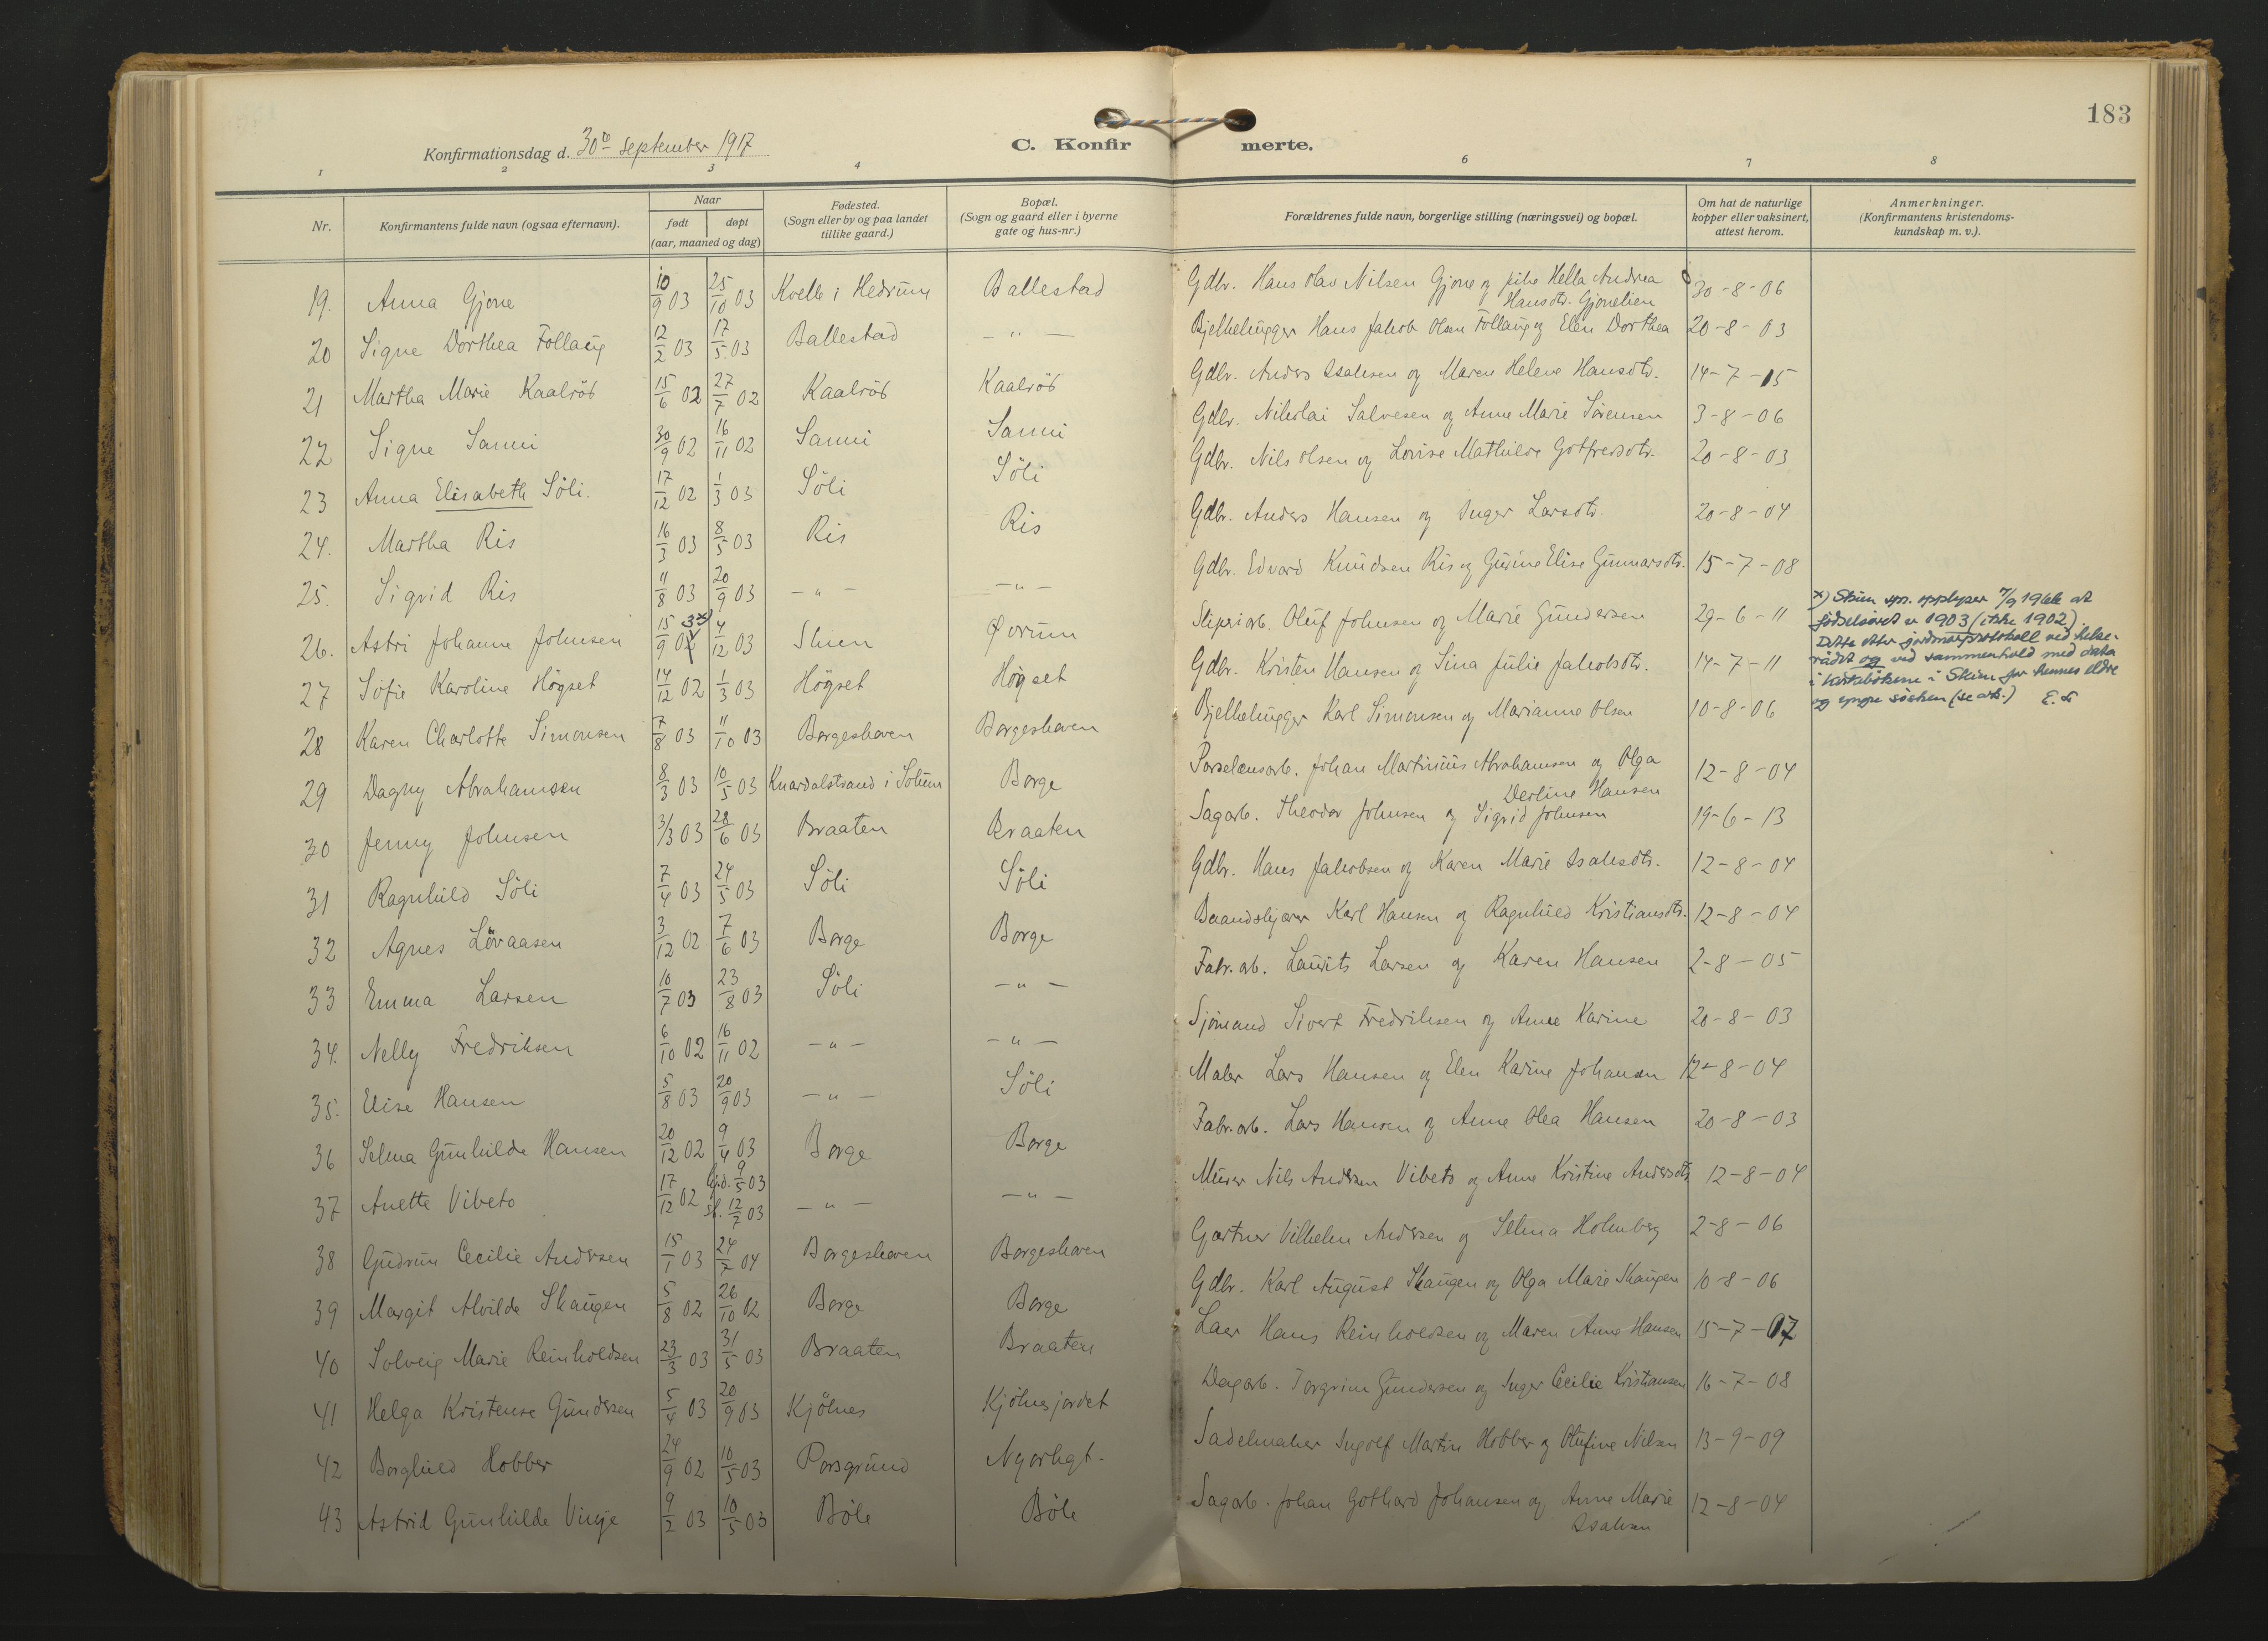 183
Konfirmationsdag d. 30te september 1917
C. Konfir merte.
1 2 3 4 6 7 8
Nr. Konfirmantens fulde navn (ogsaa efternavn). Naar født døpt (aar, maaned og dag) Fødested. (Sogn eller by og paa landet tillike gaard.) Bopæl. (Sogn og gaard eller i byerne gate og hus-nr.) Forældrenes fulde navn, borgerlige stilling (næringsvei) og bopæl. Om hat de naturlige kopper eller vaksinert, attest herom. Anmerkninger. (Konfirmantens kristendoms- kundskap m. v.).
19. Anna Gjone 10/9 03 25/10 03 Kvelle i Hedrum Ballestad Gdbr. Hans Olav Nilsen Gjone og Hella Andrea Hansdtr. Gjonelien 30-8-06
20 Signe Dorthea Follaug 12/2 03 17/5 03 Ballestad -"- Bjelkehugger Hans Jakob Olsen Follaug og Elen Dorthea 20-8-03
21 Martha Marie Kaalröd 15/6 02 27/7 02 Kaalröd Kaalröd Gdbr. Anders Isaksen og Maren Helene Hansdtr. 14-7-15
22 Signe Sanni 30/9 02 16/11 02 Sanni Sanni Gdbr. Nikolai Salvesen og Anne Marie Sörensen 3-8-06
23 Anna Elisabeth Söli. 17/12 02 1/3 03 Söli Söli Gdbr. Nils Olsen og Lovise Mathilde Gotfredsdtr. 20-8-03
24. Martha Ris 16/3 03 8/5 03 Ris Ris Gdbr. Anders Hansen og Inger Larsdtr. 20-8-04
25. Sigrid Ris 11/8 03 20/9 03 -"- -"- Gdbr. Edvard Knudsen Ris og Gurine Elise Gunnarsdtr. 15-7-08
26. Astri Johanne Johnsen 15/9 02 3x) 4/12 03 Skien Øvrum Sliperiarb. Oluf Johnsen og Marie Gundersen 29-6-11
x) Skien spr. opplyser 7/9 1966 at
födselsåret er 1903 (ikke 1902).
Dette etter jordmorprotokoll ved helse-
rådet og ved sammenhold med data
i kirkebökene i Skien for hennes eldre
og yngre sösken (se arb.) E. S.
27 Sofie Karoline Högset 14/12 02 1/3 03 Högset Högset Gdbr. Kristen Hansen og Sina Julie Jakobsdtr. 14-7-11
28 Karen Charlotte Simonsen 7/8 03 11/10 03 Borgeskoven Borgeskoven Bjelkehugger Karl Simonsen og Marianne Olsen 10-8-06
29 Dagny Abrahamsen 8/3 03 10/5 03 Knardalstrand i Solum Borge Porselænsarb. Johan Martinius Abrahamsen og Olga Dertine Hansen 12-8-04
30 Jenny Johnsen 3/3 03 28/6 03 Braaten Braaten Sagarb. Theodor Johnsen og Sigrid Johnsen 19-6-13
31 Ragnhild Söli 7/4 03 24/5 03 Söli Söli Gdbr. Hans Jakobsen og Karen Marie Isaksdtr. 12-8-04
32 Agnes Lövaasen 3/12 02 7/6 03 Borge Borge Baandskjærer Karl Hansen og Ragnhild Kristiansdtr. 12-8-04
33 Emma Larsen 10/7 03 23/8 03 Söli -"- Fabr. arb. Laurits Larsen og Karen Hansen 2-8-05
34. Nelly Fredriksen 6/10 02 16/11 02 -"- -"- Sjömand Sivert Fredriksen og Anne Karine 20-8-03
35. Elise Hansen 5/8 03 20/9 03 -"- Söli Maler Lars Hansen og Elen Karine Johansen 12-8-04
36 Selma Gunhilde Hansen 20/12 02 9/4 03 Borge Borge Fabr. arb. Lars Hansen og Anne Olea Hansen 20-8-03
37 Anette Vibeto 17/12 02 hjd. 9/5 03 st. 12/7 03 -"- -"- Murer Nils Andersen Vibeto og Anne Kristine Andersdtr. 12-8-04
38 Gudrun Cecilie Andersen 15/1 03 24/7 04 Borgeskoven Borgeskoven Gartner Vilhelm Andersen og Selma Holmberg 2-8-06
39 Margit Alvilde Skaugen 5/8 02 26/10 02 Borge Borge Gdbr. Karl August Skaugen og Olga Marie Skaugen 10-8-06
40 Solveig Marie Reinholdsen 23/3 03 31/5 03 Braaten Braaten Laer Hans Reinholdsen og Maren Anne Hansen 15-7-07
41 Helga Kristense Gundersen 5/4 03 20/9 03 Kjölnes Kjölnesjordet Dagarb. Torgrim Gundersen og Inger Cecilie Kristiansen 16-7-08
42 Borghild Hobber 24/9 02 10/5 03 Porsgrund Nyorligt. Sadelmaker Ingolf Martin Hobber og Olufine Nilsen 13-9-09
43 Astrid Gunhilde Vinje 9/2 03 10/5 03 Böle Böle Sagarb. Johan Gothard Johansen og Anne Marie Isaksen 12-8-04